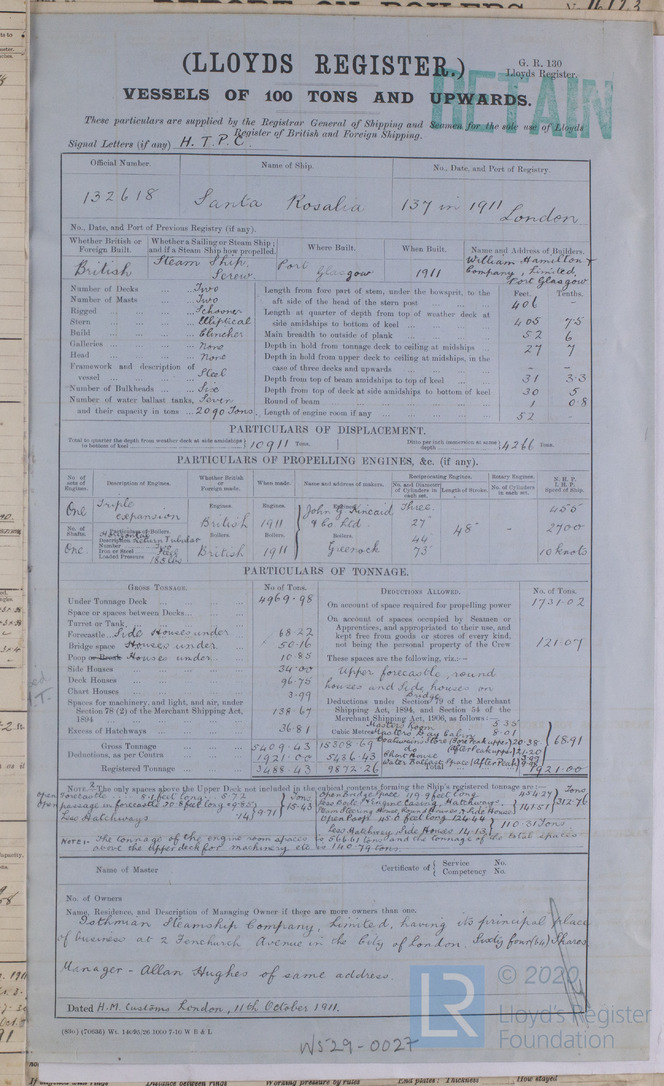 (LLOYDS REGISTER.)
G. R. 130
Lloyds Register.
RETAIN
VESSELS OF 100 TONS AND UPWARDS.
These particulars are supplied by the Registrar General of Shipping and Seamen for the sole use of Lloyds
Register of British and Foreign Shipping.
Signal Letters (if any) H. T. P. C.
Official Number. Name of Ship. No., Date, and Port of Registry.
132618 Santa Rosalia 137 in 1911 London
No., Date, and Port of Previous Registry (if any).
Whether British or Foreign Built. Whether a Sailing or Steam Ship; and if a Steam Ship how propelled. Where Built. When Built. Name and Address of Builders.
British Steam Ship, Screw. Port Glasgow 1911 William Hamilton & Company, Limited, Port Glasgow
Number of Decks Two
Number of Masts Two
Rigged Schooner
Stern Elliptical
Build Clincher
Galleries None
Head None
Framework and description of vessel Steel
Number of Bulkheads Six
Number of water ballast tanks, Seven
and their capacity in tons 2090 Tons.
Feet. Tenths.
Length from fore part of stem, under the bowsprit, to the aft side of the head of the stern post 406 -
Length at quarter of depth from top of weather deck at side amidships to bottom of keel 405 7.5
Main breadth to outside of plank 52 6
Depth in hold from tonnage deck to ceiling at midships 27 7
Depth in hold from upper deck to ceiling at midships, in the case of three decks and upwards - -
Depth from top of beam amidships to top of keel 31 3.3
Depth from top of deck at side amidships to bottom of keel 30 5
Round of beam 1 0.8
Length of engine room if any 52
PARTICULARS OF DISPLACEMENT.
Total to quarter the depth from weather deck at side amidships to bottom of keel 10911 Tons. Ditto per inch immersion at same depth 42.66 Tons.
PARTICULARS OF PROPELLING ENGINES, &c. (if any).
No. of sets of Engines. Description of Engines. Whether British or Foreign made. When made. Name and address of makers. Reciprocating Engines. Rotary Engines. N. H. P. I. H. P. Speed of Ship.
No. and Diameter of Cylinders in each set. Length of Stroke. No. of Cylinders in each set.
One Triple expansion Engines. British Engines. 1911 Engines. John G. Kincaid & Co Ltd. Three. 27" 44" 73" 48" - 455 2700 10 knots
No. of Shafts. Particulars of Boilers. Boilers. Boilers. Boilers.
One Description Horizontal Return Tubular British 1911 Greenock
Number Two
Iron or Steel Steel
Loaded Pressure 185 lbs
PARTICULARS OF TONNAGE.
GROSS TONNAGE. No of Tons.
Under Tonnage Deck 4969.98
Space or spaces between Decks
Turret or Trunk
Forecastle Side Houses under 68.22
Bridge space Houses under 50.16
Poop or Break Houses under 10.85
Side Houses 34.00
Deck Houses 96.75
Chart Houses 3.99
Spaces for machinery, and light, and air, under Section 78 (2) of the Merchant Shipping Act, 1894 138.67
Excess of Hatchways 36.81
Gross Tonnage 5409.43
Deductions, as per Contra 1921.00
Registered Tonnage 3488.43
Cubic Metres
15308.69
5436.43
9872.26
DEDUCTIONS ALLOWED. No. of Tons.
On account of space required for propelling power 1731.02
On account of spaces occupied by Seamen or Apprentices, and appropriated to their use, and kept free from goods or stores of every kind, not being the personal property of the Crew 121.07
These spaces are the following, viz.:-
Upper forecastle, round houses and Side houses on Bridge
Deductions under Section 79 of the Merchant Shipping Act, 1894, and Section 54 of the Merchant Shipping Act, 1906, as follows:-
Masters Room 5.35
8.01
Boatswains Store (Fore Peak upper) 20.38
do (After Peak upper) 21.20
Water Ballast Space (After Peak)
68.91
Total 1921.00
NOTE.—The only spaces above the Upper Deck not included in the cubical contents forming the Ship's registered tonnage are:—
Open forecastle 8.1 feet long 5.72
Open passage in forecastle 20.8 feet long 9.85
Less Hatchways .14
9.71
15.43 Tons
Open Bridge space 119.9 feet long 454.27
141.51
312.76 Tons
Open Poop 45.0 feet long 124.44
Less Hatchway, Side Houses 14.13
110.31 Tons
NOTE: The tonnage of the engine room spaces is 566.61 tons and the tonnage of the total spaces above the upper deck for machinery etc is 140.79 tons.
Name of Master Certificate of Service No.
Competency No.
No. of Owners
Name, Residence, and Description of Managing Owner if there are more owners than one.
Bothnian Steamship Company, Limited, having its principal place
of business at 2 Fenchurch Avenue in the City of London. Sixty four (64) Shares
Manager - Allan Hughes of same address.
Dated H.M. Customs London, 11th October 1911.
(83a) (70638) Wt. 14692/26 1000 7-10 W B & L
W529-0027
LR
© 2020
Lloyd's Register
Foundation
Distance between rings
Working pressure by rules
End plates: Thickness
How stayed